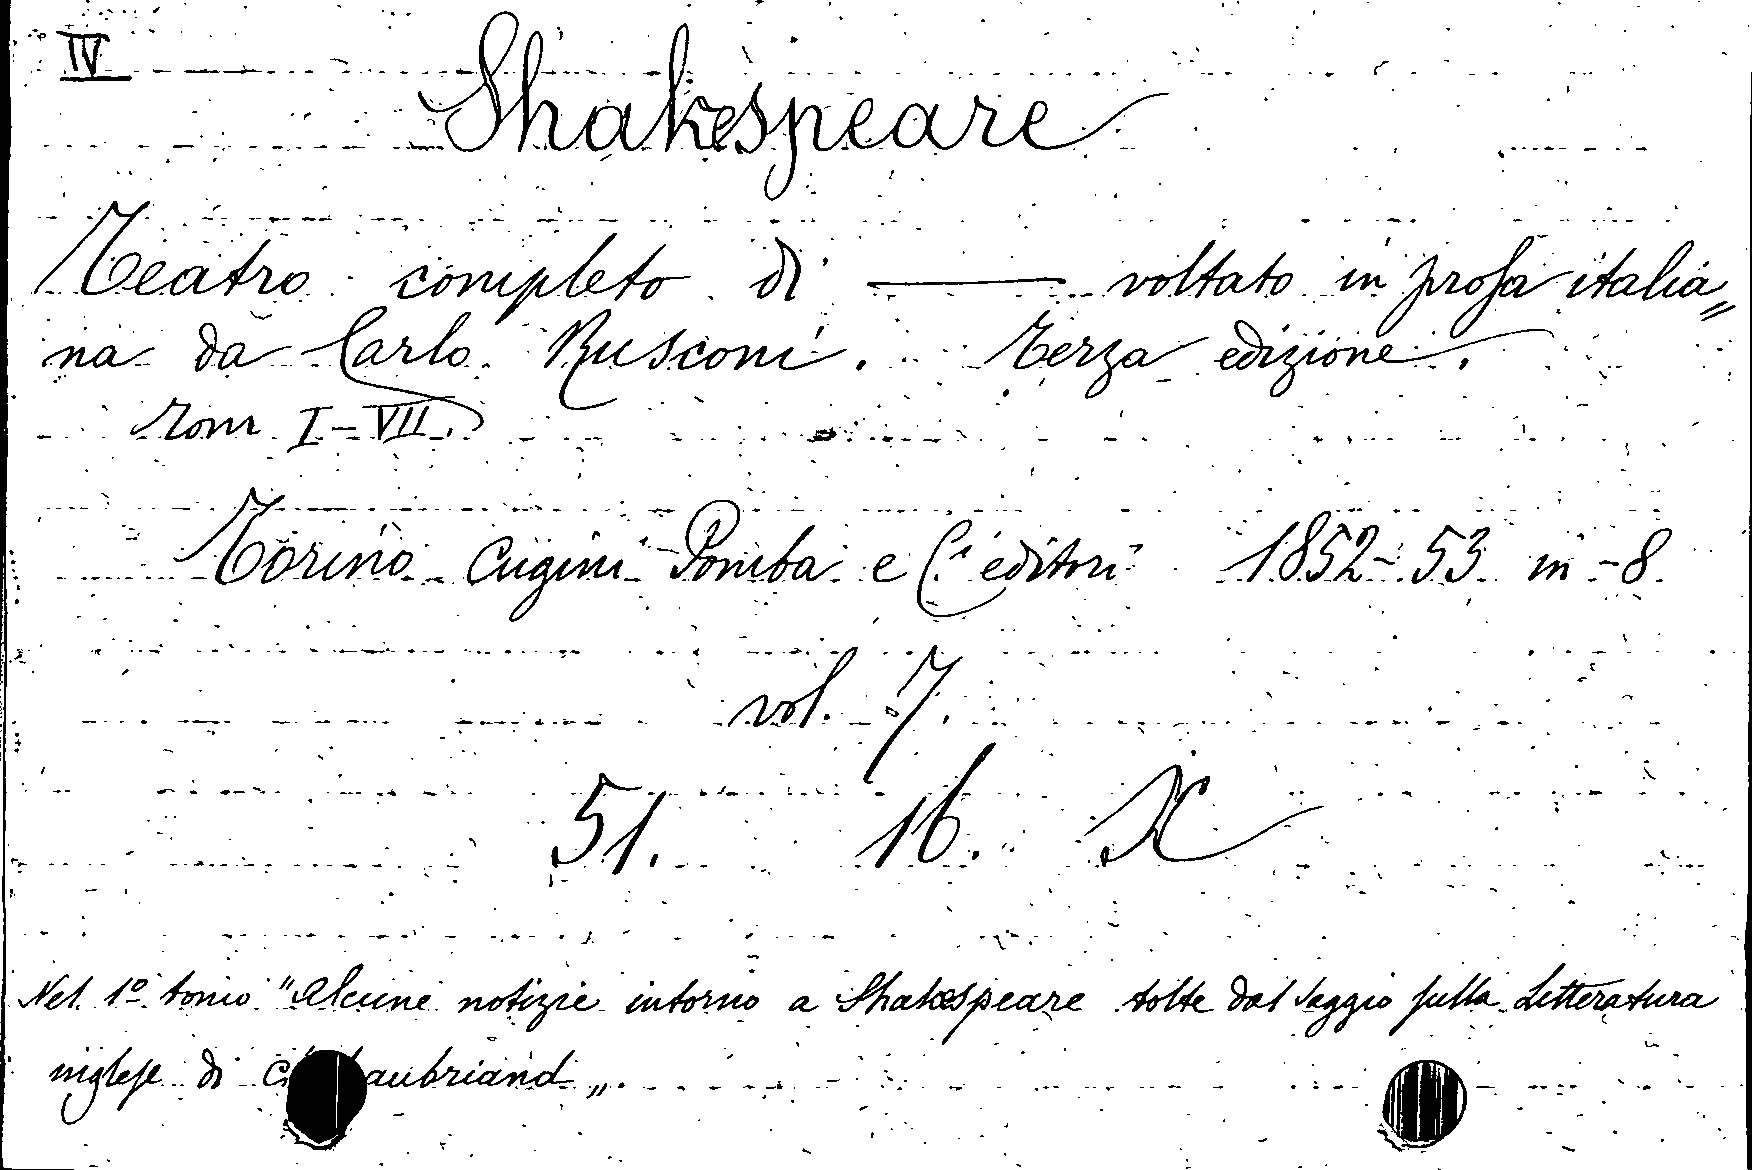 IV
Shakespeare
Teatro completo di ——— voltato in prosa italia„
na da Carlo Rusconi. Terza edizione.
Tom I–VII.
Torino Cugini Pomba e C.i editori 1852-53 in -8
vol. 7.
51. 16. X
Nel 1º tomo "Alcune notizie intorno a Shakespeare tolte dal saggio sulla Letteratura
inglese di C aubriand„.